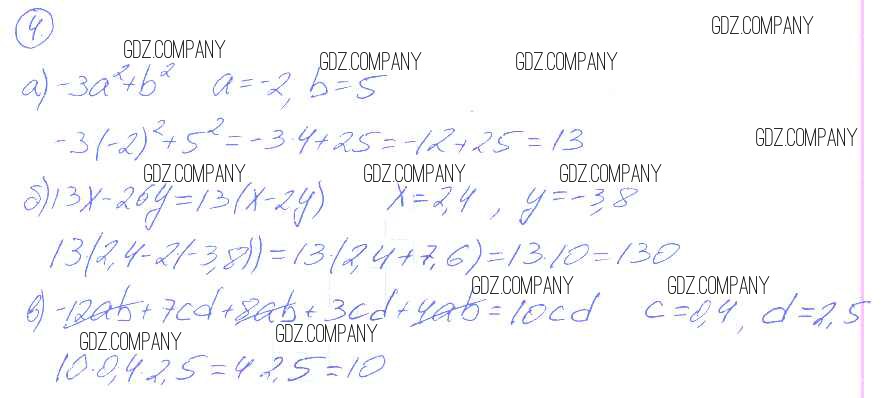 4.
GDZ.COMPANY
GDZ.COMPANY GDZ.COMPANY GDZ.COMPANY
а) -3a²+b² a=-2, b=5
-3(-2)²+5²=-3·4+25=-12+25=13
GDZ.COMPANY
GDZ.COMPANY GDZ.COMPANY GDZ.COMPANY
б) 13x-26y=13(x-2y) x=2,4, y=-3,8
13(2,4-2(-3,8))=13·(2,4+7,6)=13·10=130
GDZ.COMPANY GDZ.COMPANY
в) -12ab+7cd+8ab+3cd+4ab=10cd c=0,4, d=2,5
GDZ.COMPANY GDZ.COMPANY
10·0,4·2,5=4·2,5=10